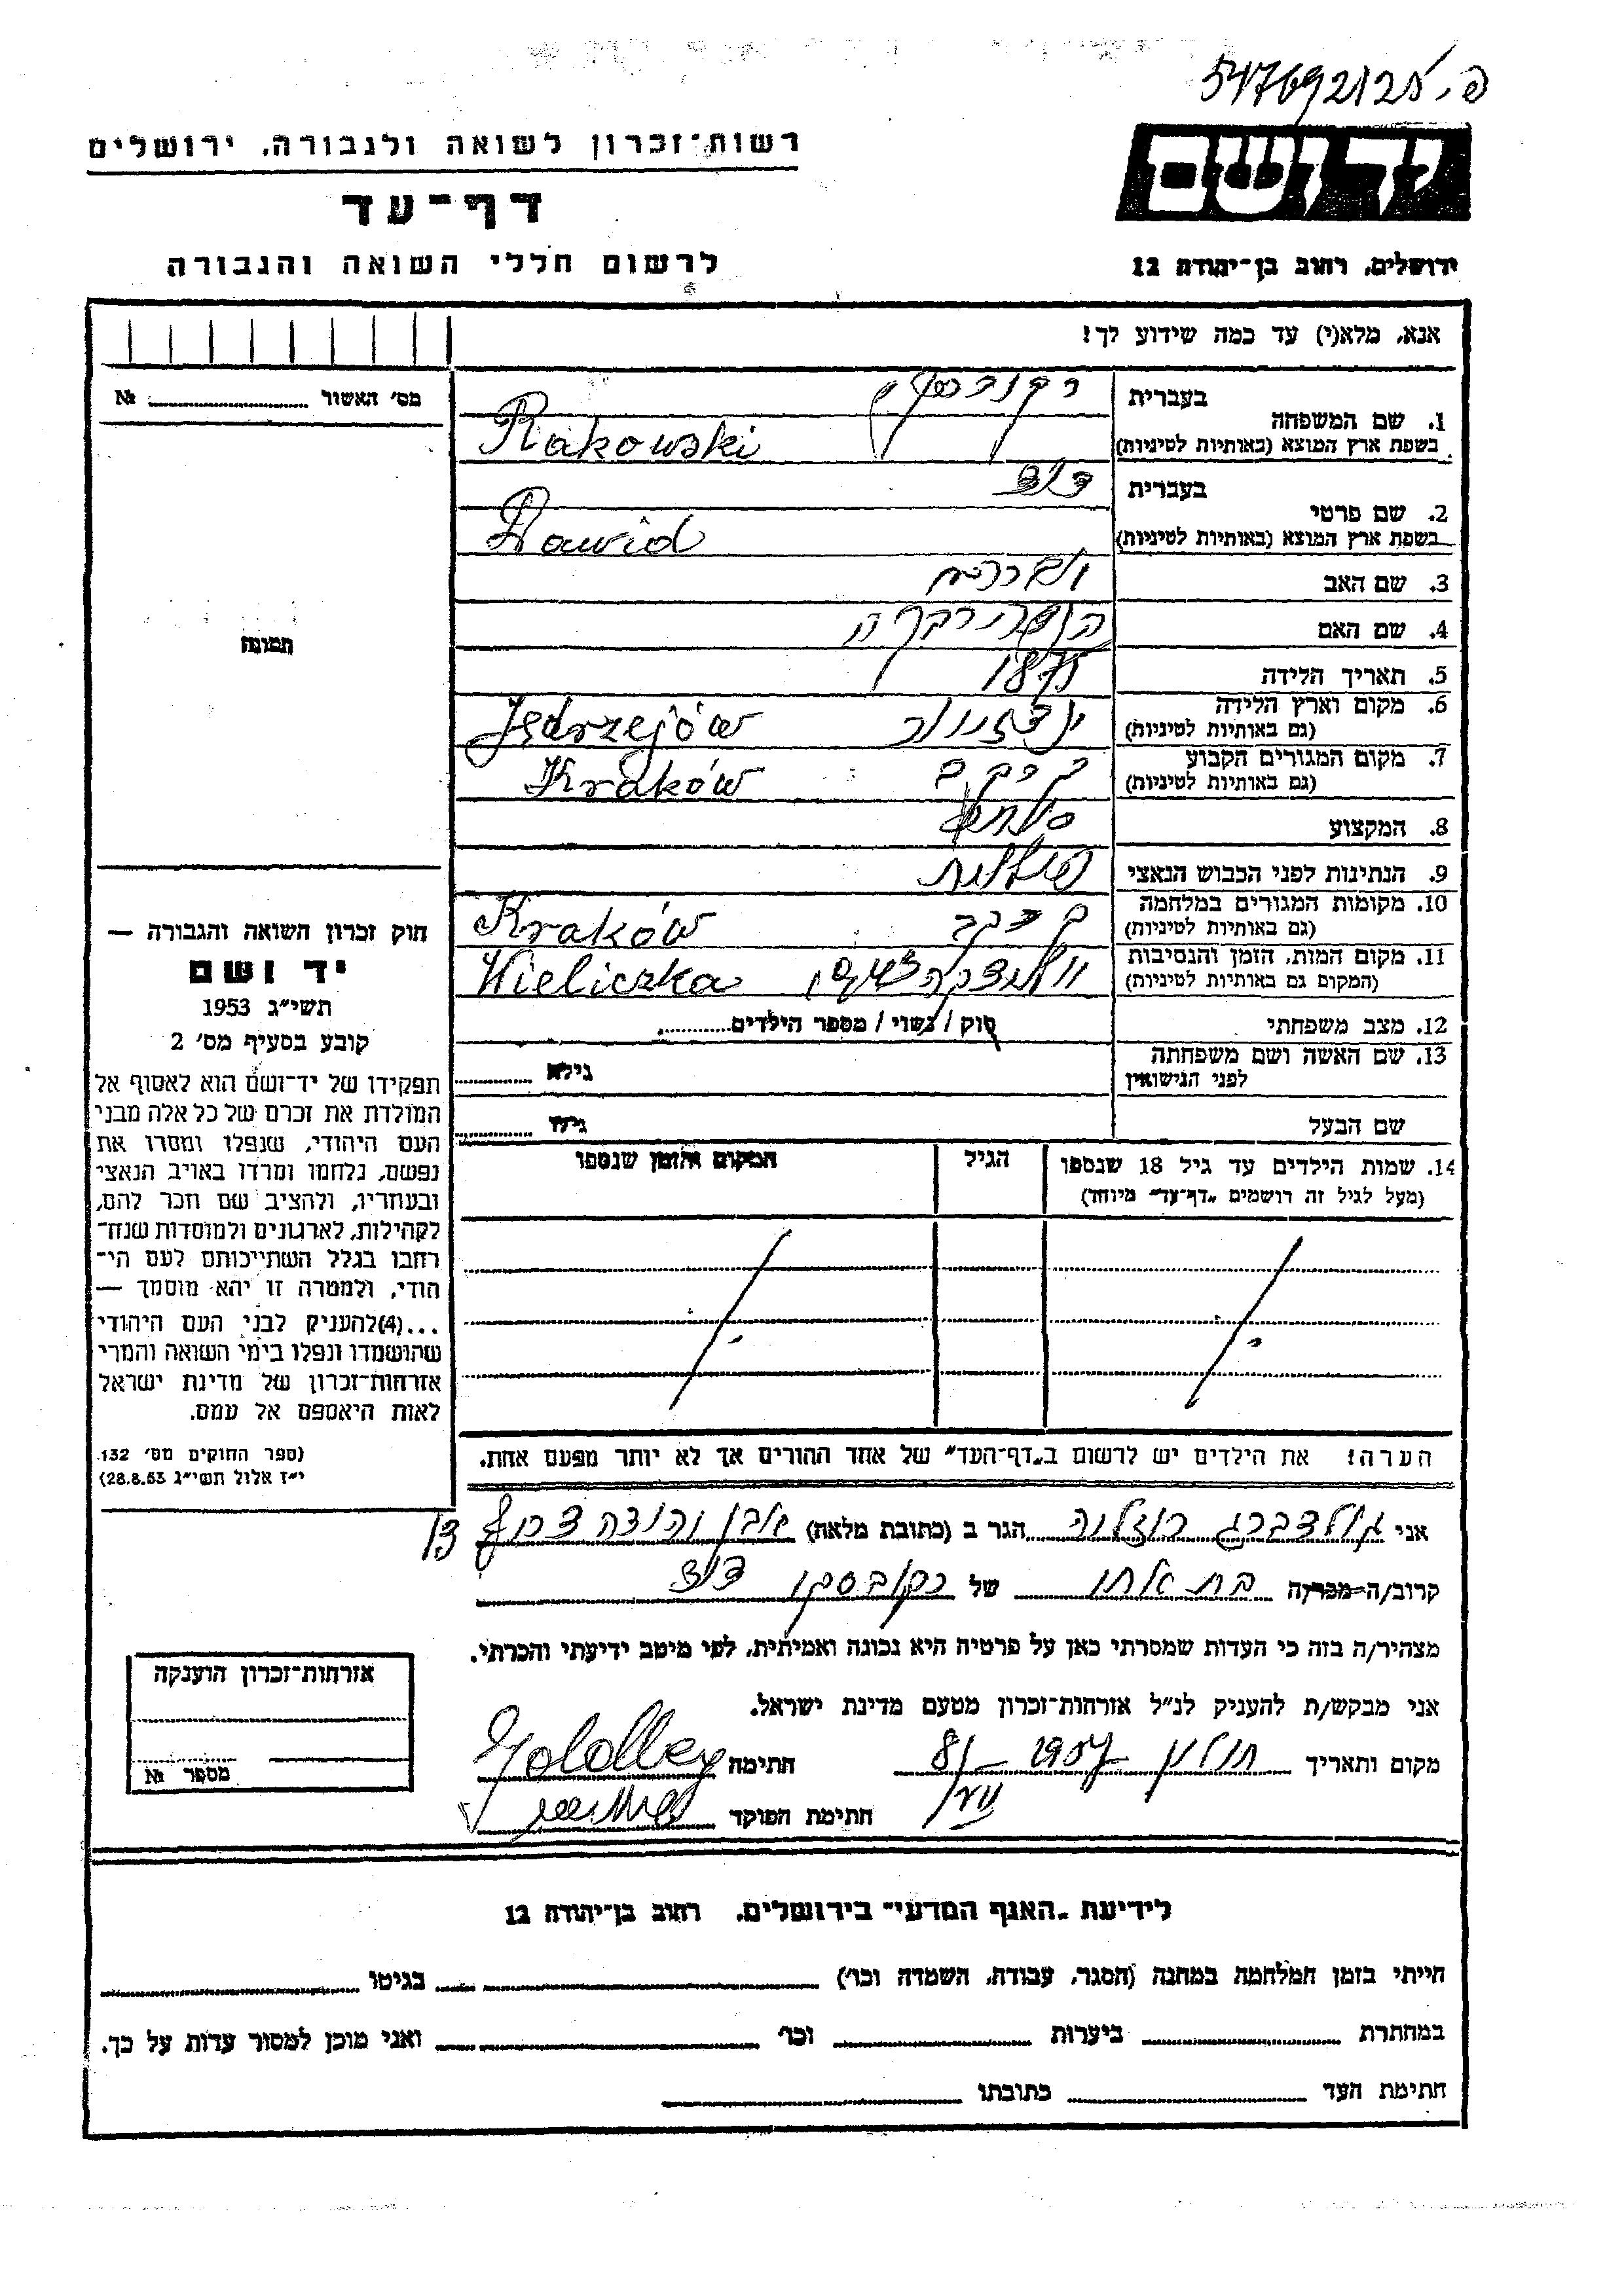 רשות־זכרון לשואה ולגבורה, ירושלים
דף־עד
לרשום חללי השואה והגבורה
יד ושם
ירושלים, רחוב בן־יהודה 12
אנא, מלא(י) עד כמה שידוע לך!
מס' האשור № 
1. שם המשפחה
בעברית רקובסקי
בשפת ארץ המוצא (באותיות לטיניות) Rakowski
2. שם פרטי
בעברית דוד
בשפת ארץ המוצא (באותיות לטיניות) Dawid
3. שם האב
4. שם האם
5. תאריך הלידה 1875
6. מקום וארץ הלידה
(גם באותיות לטיניות) Jędrzejów
7. מקום המגורים הקבוע
(גם באותיות לטיניות) Kraków
8. המקצוע
9. הנתינות לפני הכבוש הנאצי פולנית
10. מקומות המגורים במלחמה
(גם באותיות לטיניות) קרקב Kraków
11. מקום המות, הזמן והנסיבות
(המקום גם באותיות לטיניות) Wieliczka
12. מצב משפחתי רוק / נשוי / מספר הילדים
13. שם האשה ושם משפחתה
לפני הנישואין גילא
שם הבעל גילו
14. שמות הילדים עד גיל 18 שנספו הגיל המקום והזמן שנספו
(מעל לגיל זה רושמים „דף־עד" מיוחד)
הערה! את הילדים יש לרשום ב„דף־העד" של אחד ההורים אך לא יותר מפעם אחת.
תמונה
חוק זכרון השואה והגבורה —
יד ושם
תשי"ג 1953
קובע בסעיף מס' 2
תפקידו של יד־ושם הוא לאסוף אל
המולדת את זכרם של כל אלה מבני
העם היהודי, שנפלו ומסרו את
נפשם, נלחמו ומרדו באויב הנאצי
ובעוזריו, ולהציב שם וזכר להם,
לקהילות, לארגונים ולמוסדות שנח־
רחבו בגלל השתייכותם לעם הי־
הודי, ולמטרה זו יהא מוסמך —
...(4)להעניק לבני העם היהודי
שהושמדו ונפלו בימי השואה והמרי
אזרחות־זכרון של מדינת ישראל
לאות היאספם אל עמם.
(ספר החוקים מס' 132
י"ז אלול תשי"ג 28.8.53)
אני גולדברג הגר ב (כתובת מלאה) אבן יהודה
קרוב/ה־מכר/ה בת אחו של רקובסקי דוד
מצהיר/ה בזה כי העדות שמסרתי כאן על פרטיה היא נכונה ואמיתית, לפי מיטב ידיעתי והכרתי.
אני מבקש/ת להעניק לנ"ל אזרחות־זכרון מטעם מדינת ישראל.
מקום ותאריך חתימה
חתימת הפוקד
אזרחות־זכרון הוענקה
מספר №
לידיעת „האגף המדעי" בירושלים, רחוב בן־יהודה 12
הייתי בזמן המלחמה במחנה (הסגר, עבודה, השמדה וכו') בגיטו
במחתרת ביערות וכו' ואני מוכן למסור עדות על כך.
חתימת העד כתובתו